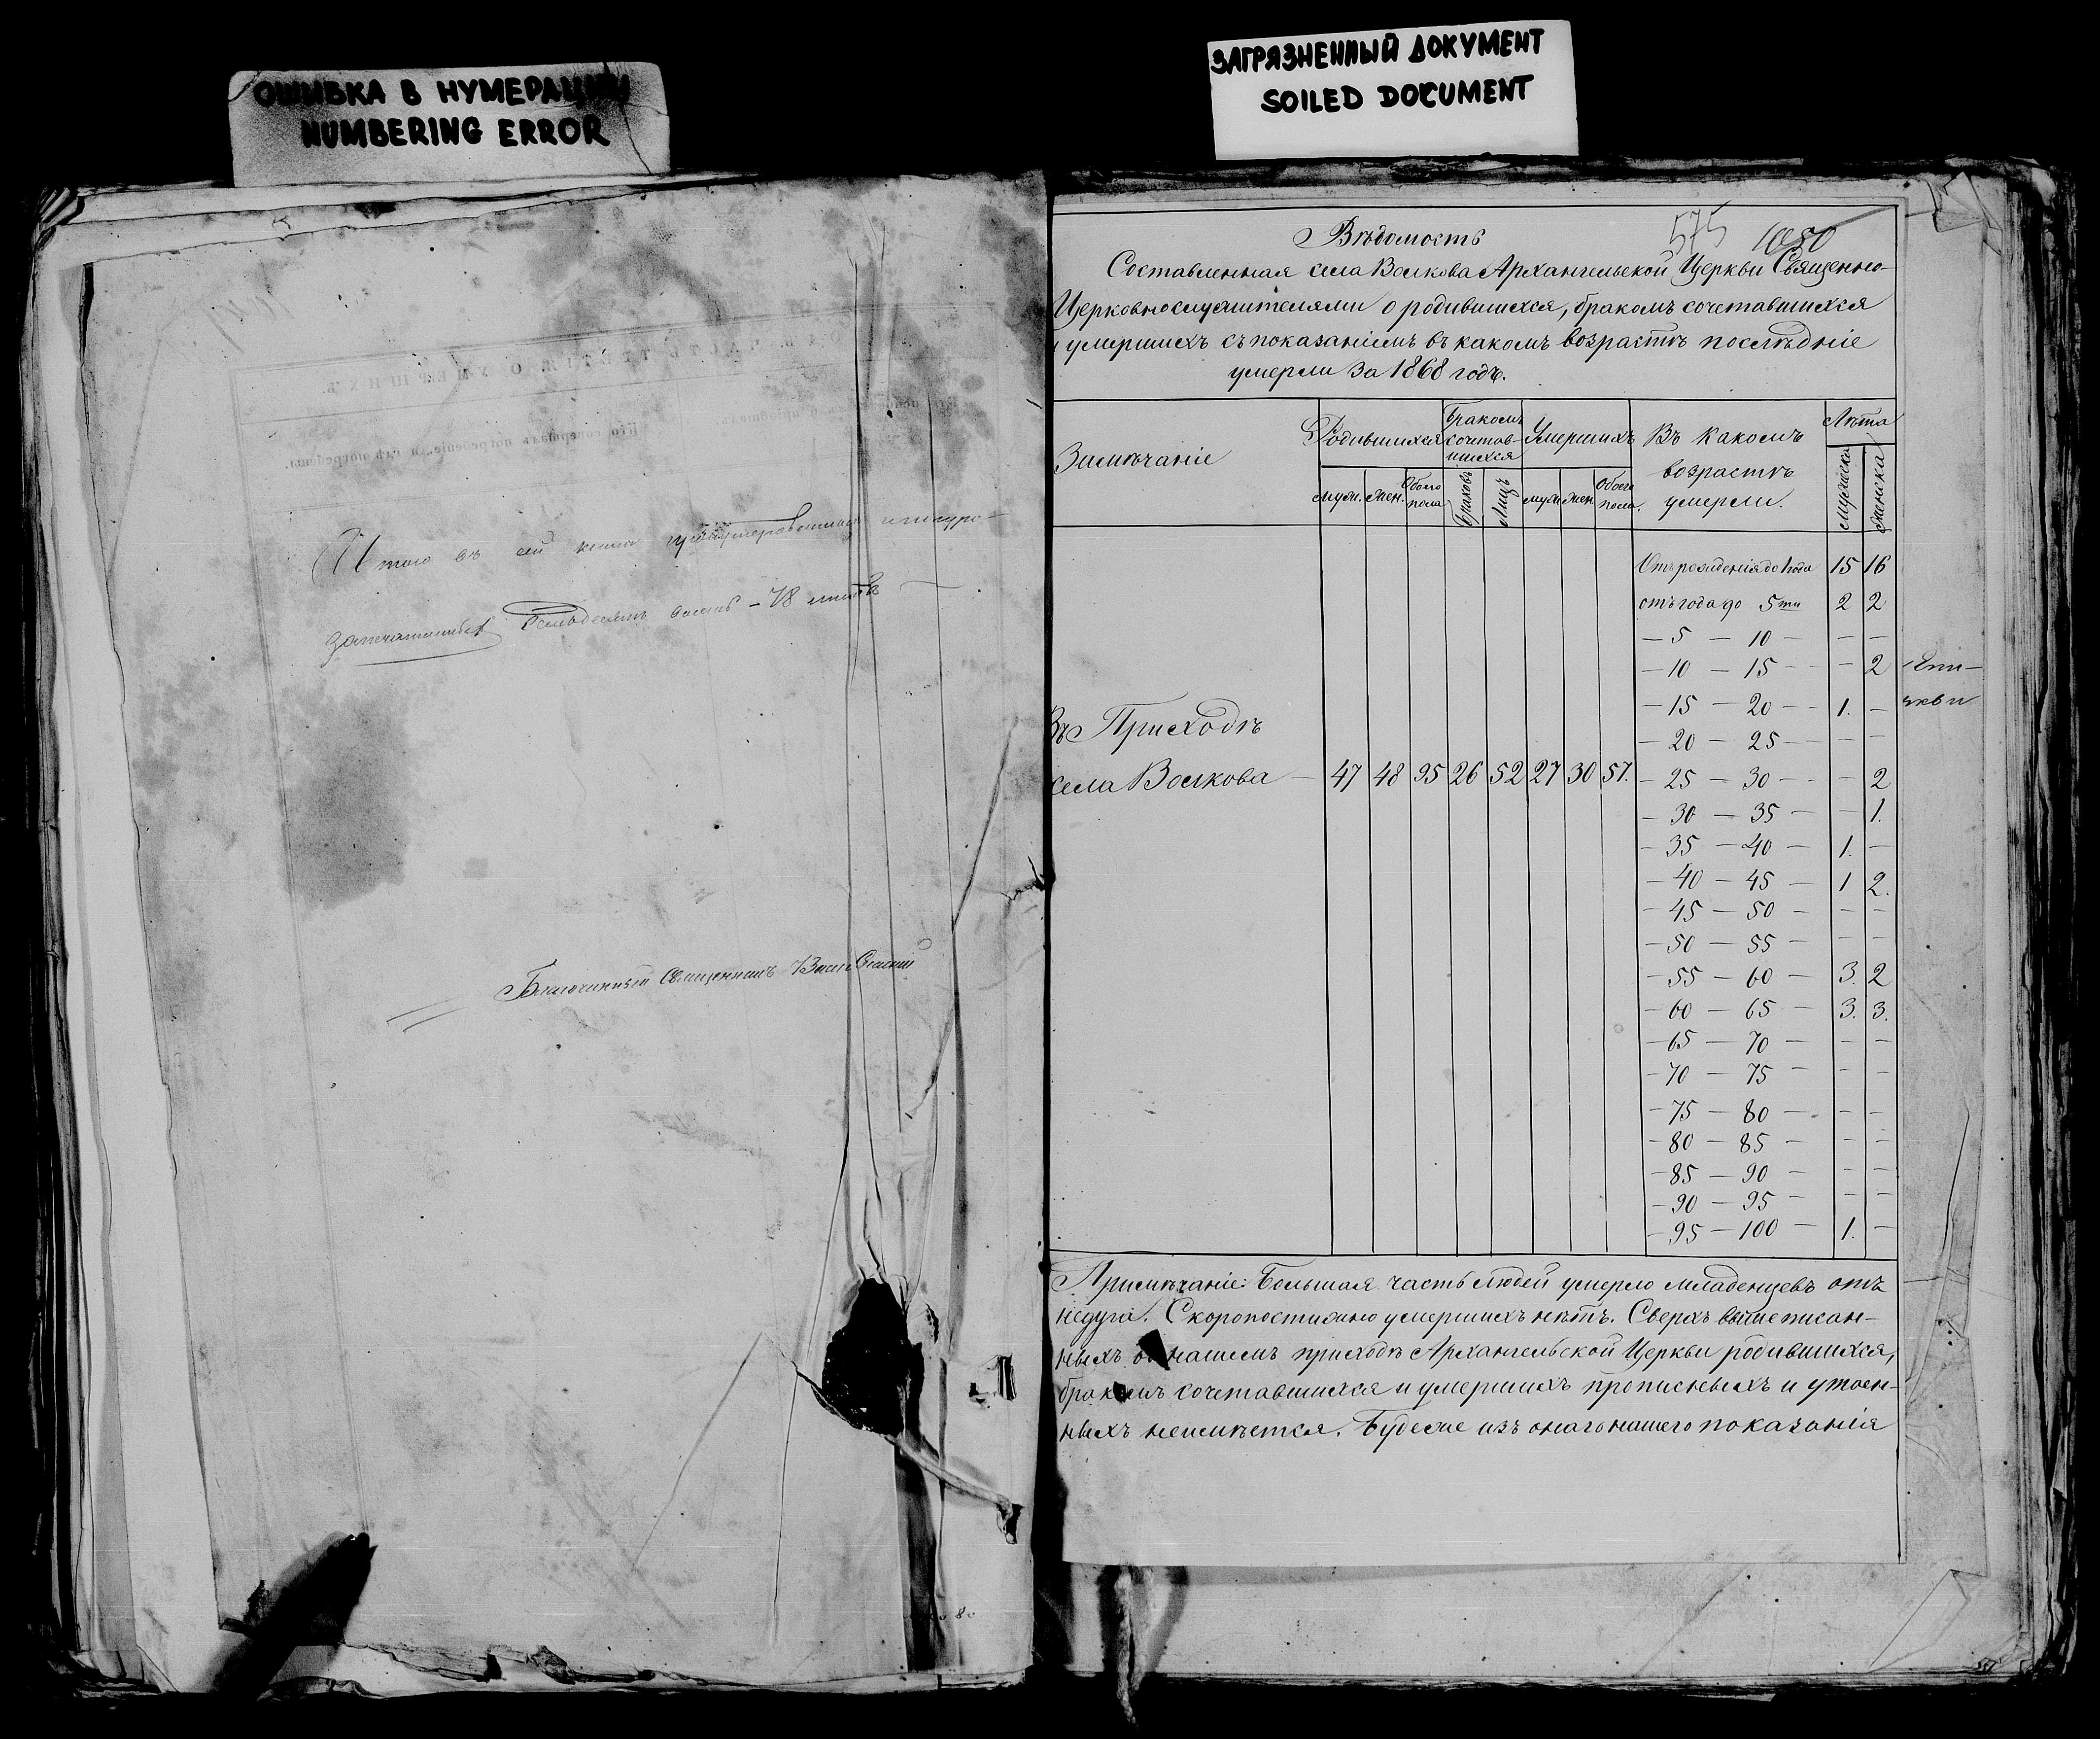 ОШИБКА В НУМЕРАЦИИ
NUMBERING ERROR
ЗАГРЯЗНЕННЫЙ ДОКУМЕНТ
SOILED DOCUMENT
Итого въ сей книгѣ
восемь – 78 листовъ
Благочинный Священникъ
575 1050
Вѣдомость
Составленная села Волкова Архангельской Церкви Священно-
Церковнослужителями о родившихся, бракомъ сочетавшихся
умершихъ съ показаніемъ въ какомъ возрастѣ послѣдніе
умерли за 1868 годъ.
Замѣчаніе
Родившихся
муж. жен. Обоего пола
Бракомъ сочетавшихся
Браковъ Лицъ
Умершихъ
муж. жен. Обоего пола.
Въ какомъ возрастѣ умерли.
Лѣта
Мужеска Женска
Отъ рожденія до 1 года 15 16
отъ года до 5ти 2 2
– 5 – 10 – – –
– 10 – 15 – – 2
– 15 – 20 – 1. –
– 20 – 25 – – –
– 25 – 30 – – 2
– 30 – 35 – – 1.
– 35 – 40 – 1. –
– 40 – 45 – 1 2.
– 45 – 50 – – –
– 50 – 55 – – –
– 55 – 60 – 3. 2
– 60 – 65 – 3. 3.
– 65 – 70 – – –
– 70 – 75 – – –
– 75 – 80 – – –
– 80 – 85 – – –
– 85 – 90 – – –
– 90 – 95 – – –
– 95 – 100 – 1. –
Въ Приходѣ
села Волкова – 47 48 95 26 52 27 30 57.
Примѣчаніе: Большая часть людей умерло младенцевъ отъ
недуга. Скоропостижно умершихъ нѣтъ. Сверхъ вышеписан-
ныхъ въ нашемъ приходѣ Архангельской Церкви родившихся,
бракомъ сочетавшихся и умершихъ прописныхъ и утаен-
ныхъ неимѣется. Будеже изъ онаго нашего показанія